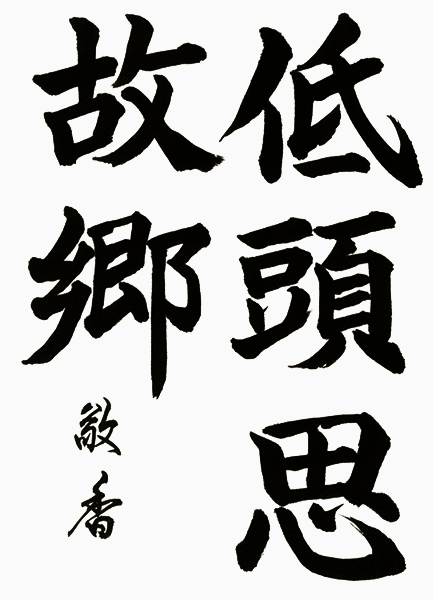 低頭思
故郷
敞香